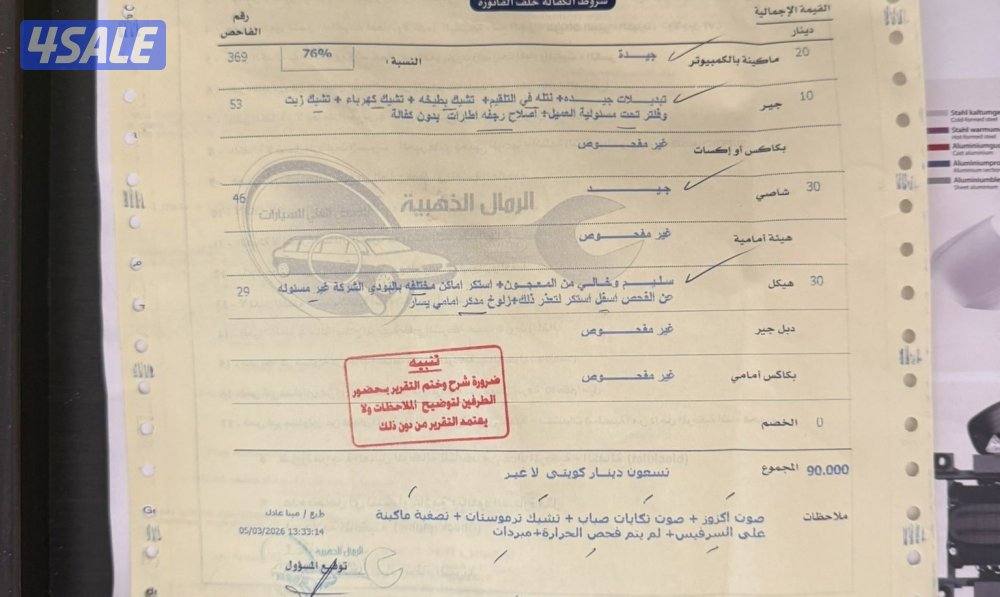 4SALE
شروط الكفالة خلف الفاتورة
القيمة الإجمالية
دينار
رقم
الفاحص
20 ماكينة بالكمبيوتر جيدة النسبة : 76% 369
10 جير تبديلات جيده+ نتله في التلقيم+ تشيك بطيخه + تشيك كهرباء + تشيك زيت 53
وفلتر تحت مسئولية العميل+ أصلاح رجفه اطارات بدون كفالة
بكاكس أو إكسات غير مفحوص
30 شاصي جيد 46
الرمال الذهبية
هيئة أمامية غير مفحوص
30 هيكل سليم وخالي من المعجون+ استكر اماكن مختلفه بالبودي الشركة غير مسئوله 29
عن الفحص اسفل استكر لتعذر ذلك+زلوخ مدكر امامي يسار
دبل جير غير مفحوص
بكاكس أمامي غير مفحوص
تنبيه
ضرورة شرح وختم التقرير بحضور
الطرفين لتوضيح الملاحظات ولا
يعتمد التقرير من دون ذلك
0 الخصم
90.000 المجموع تسعون دينار كويتي لا غير
ملاحظات صوت اگزوز + صوت تكايات صباب + تشيك ترموستات + تصفية ماكينة
على السرفيس+ لم يتم فحص الحرارة+مبردات
طبع / مينا عادل
05/03/2026 13:33:14
الرمال الذهبية
توقيع المسؤول
Stahl kaltumge
Cold-formed steel
Stahl warmum
Hot-formed steel
Aluminiumgu
Cast aluminium
Aluminiumpro
Aluminium section
Aluminiumble
Sheet aluminium